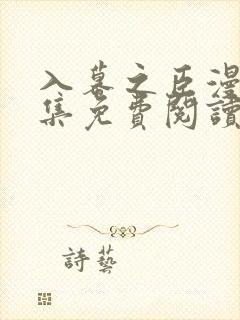 入幕之臣漫
集免費閱讀
詩藝